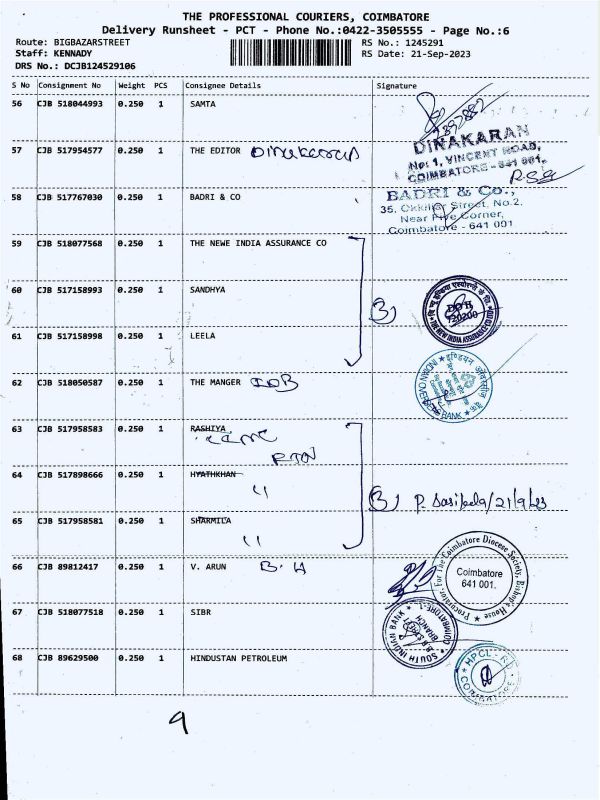 THE PROFESSIONAL COURIERS, COIMBATORE
Delivery Runsheet - PCT - Phone No.:0422-3505555 - Page No.:6
Route: BIGBAZARSTREET RS No.: 1245291
Staff: KENNADY RS Date: 21-Sep-2023
DRS No.: DCJB124529106
S No Consignment No Weight PCS Consignee Details Signature
56 CJB 518044993 0.250 1 SAMTA
57 CJB 517954577 0.250 1 THE EDITOR Dinakaran
DINAKARAN
No: 1, VINCENT ROAD,
COIMBATORE - 641 001.
58 CJB 517767030 0.250 1 BADRI & CO
BADRI & Co.,
35, Okkiliar Street, No.2.
Near Five Corner,
Coimbatore - 641 001
59 CJB 518077568 0.250 1 THE NEWE INDIA ASSURANCE CO
60 CJB 517158993 0.250 1 SANDHYA 3
720200
61 CJB 517158998 0.250 1 LEELA
62 CJB 518050587 0.250 1 THE MANGER IOB
63 CJB 517958583 0.250 1 RASHIYA
RTN
64 CJB 517898666 0.250 1 HYATHKHAN
"
3 P. Sasikala/21/9/23
65 CJB 517958581 0.250 1 SHARMILA
"
66 CJB 89812417 0.250 1 V. ARUN B.H
Procurator, For The Coimbatore Diocese Society, Bishop's House
Coimbatore
641 001.
67 CJB 518077518 0.250 1 SIBR
SOUTH INDIAN BANK
BRANCH
68 CJB 89629500 0.250 1 HINDUSTAN PETROLEUM
HPCL - RO
COIMBATORE
9